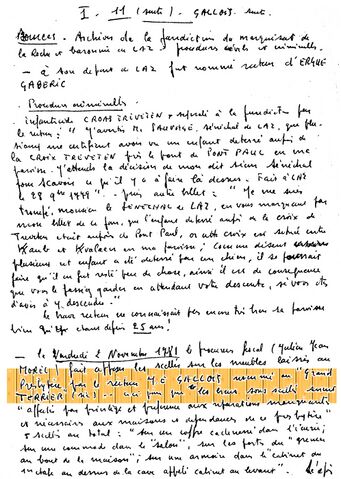 I - 11 (suite). GALLOIS. suite.
Sources - Archives de la juridiction du marquisat de
la Roche et baronnie de LAZ - procédures civiles et criminelles.
- à son départ de LAZ fut nommé recteur d'ERGUE
GABERIC
Procédures criminelles.
- infanticide CROAS TREVETEN signalé à la juridiction par
le recteur : "J'avertis M. SAUVAGE, sénéchal de LAZ, que plu-
sieurs me certifient avoir vu un enfant déterré auprès de
la CROIX TREVETEN près le pont de PONT PAUL en ma
paroisse. J'attends la décision de mon dit sieur Sénéchal
pour scavoir ce qu'il y a à faire là dessus. Fait à LAZ
le 28 1779" - puis, autre billet : "Je me suis
trompé, monsieur le SENECHAL de LAZ, en vous marquant par
mon billet de ce jour, que l'enfant déterré auprès de la croix de
Treveten était auprès de Pont Paul, or cette croix est située entre
et en ma paroisse ; comme disent
plusieurs cet enfant a été déterré par un chien, il se pourrait
faire qu'il en fut resté peu de chose, ainsi il est de conséquence
que vous le fassiez garder en attendant votre descente, si vous êtes
d'avis d'y descendre."
le brave recteur ne connaissait pas encore très bien sa paroisse
bien qu'il y était depuis 25 ans !
- le Vendredi 2 Novembre 1781 le procureur fiscal (Julien Jean
MOREL) fait apposer les scellés sur les meubles laissés au
Presbytère par le recteur Y.E. GALLOIS nommé au "Grand
TERRIER" (sic) .. les biens sous scellé seront
"affectés par privilège et préférence aux réparations manquantes
et nécessaires aux maisons et dépendances de ce presbytère"
5 scellés au total : "sur un coffre cadenassé dans l'écurie ;
sur une commode dans le "salon", sur les portes du "grenier
au bout de la maison" ; sur une armoire dans le cabinet du
au dessus de la cave appelé cabinet au levant".